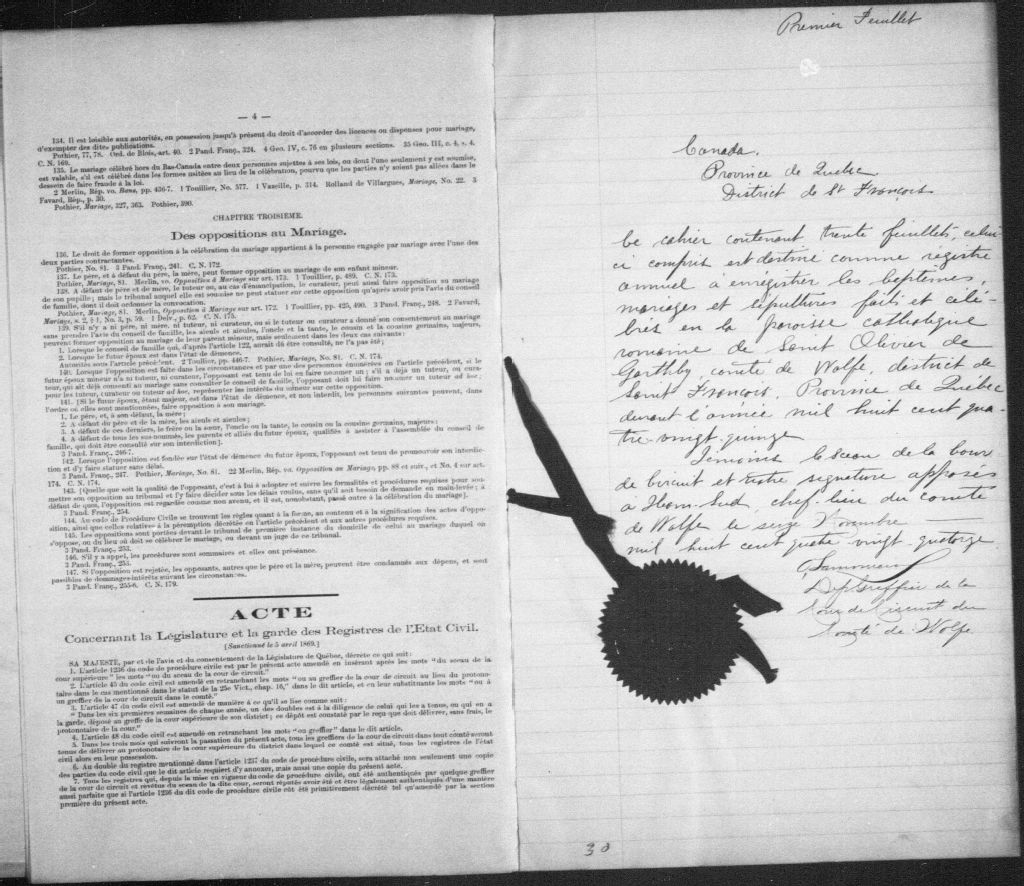 — 4 —
134. Il est loisible aux autorités, en possession jusqu'à présent du droit d'accorder des licences ou dispenses pour mariage,
d'exempter des dites publications.
Pothier, 77, 78. Ord. de Blois, art. 40. 2 Pand. Franç., 324. 4 Geo. IV, c. 76 en plusieurs sections. 35 Geo. III, c. 4, s. 4.
C. N. 169.
135. Le mariage célébré hors du Bas-Canada entre deux personnes sujettes à ses lois, ou dont l'une seulement y est soumise,
est valable, s'il est célébré dans les formes usitées au lieu de la célébration, pourvu que les parties n'y soient pas allées dans le
dessein de faire fraude à la loi.
2 Merlin, Rép. vo. Bans, pp. 436-7. 1 Toullier, No. 577. 1 Vazeille, p. 314. Rolland de Villargues, Mariage, No. 22. 3
Favard, Rép., p. 30.
Pothier, Mariage, 327, 363. Pothier, 390.
CHAPITRE TROISIEME.
Des oppositions au Mariage.
136. Le droit de former opposition à la célébration du mariage appartient à la personne engagée par mariage avec l'une des
deux parties contractantes.
Pothier, No. 81. 3 Pand. Franç., 241. C. N. 172.
137. Le père, et à défaut du père, la mère, peut former opposition au mariage de son enfant mineur.
Pothier, Mariage, 81. Merlin, vo. Opposition à Mariage sur art. 173. 1 Toullier, p. 489. C. N. 173.
138. A défaut de père et de mère, le tuteur ou, au cas d'émancipation, le curateur, peut aussi faire opposition au mariage
de son pupille; mais le tribunal auquel elle est soumise ne peut statuer sur cette opposition qu'après avoir pris l'avis du conseil
de famille, dont il doit ordonner la convocation.
Pothier, Mariage, 81. Merlin, Opposition à Mariage sur art. 172. 1 Toullier, pp. 425, 490. 3 Pand. Franç., 248. 2 Favard,
Mariage, s. 2, § 1, No. 3, p. 59. 1 Delv., p. 62. C. N. 175.
139. S'il n'y a ni père, ni mère, ni tuteur, ni curateur, ou si le tuteur ou curateur a donné son consentement au mariage
sans prendre l'avis du conseil de famille, les aïeuls et aïeules, l'oncle et la tante, le cousin et la cousine germains, majeurs,
peuvent former opposition au mariage de leur parent mineur, mais seulement dans les deux cas suivants:
1. Lorsque le conseil de famille qui, d'après l'article 122, aurait dû être consulté, ne l'a pas été;
2. Lorsque le futur époux est dans l'état de démence.
Autorités sous l'article précédent. 2 Toullier, pp. 446-7. Pothier, Mariage, No. 81. C. N. 174.
140. Lorsque l'opposition est faite dans les circonstances et par une des personnes énumérées en l'article précédent, si le
futur époux mineur n'a ni tuteur, ni curateur, l'opposant est tenu de lui en faire nommer un; s'il a déjà un tuteur, ou cura-
teur, qui ait déjà consenti au mariage sans consulter le conseil de famille, l'opposant doit lui faire nommer un tuteur ad hoc;
pour les tuteur, curateur ou tuteur ad hoc, représenter les intérêts du mineur sur cette opposition.
141. [Si le futur époux, étant majeur, est dans l'état de démence, et non interdit, les personnes suivantes peuvent, dans
l'ordre où elles sont mentionnées, faire opposition à son mariage.
1. Le père, et, à son défaut, la mère;
2. A défaut du père et de la mère, les aïeuls et aïeules;
3. A défaut de ces derniers, le frère ou la sœur, l'oncle ou la tante, le cousin ou la cousine germains, majeurs;
4. A défaut de tous les sus-nommés, les parents et alliés du futur époux, qualifiés à assister à l'assemblée du conseil de
famille, qui doit être consulté sur son interdiction].
3 Pand. Franç., 246-7.
142. Lorsque l'opposition est fondée sur l'état de démence du futur époux, l'opposant est tenu de promouvoir son interdic-
tion et d'y faire statuer sans délai.
3 Pand. Franç., 247. Pothier, Mariage, No. 81. 22 Merlin, Rép. vo. Opposition au Mariage, pp. 88 et suiv., et No. 4 sur art.
174. C. N. 174.
143. [Quelle que soit la qualité de l'opposant, c'est à lui à adopter et suivre les formalités et procédures requises pour sou-
mettre son opposition au tribunal et l'y faire décider sous les délais voulus, sans qu'il soit besoin de demande en main-levée; à
défaut de quoi, l'opposition est regardée comme non avenue, et il est, nonobstant, passé outre à la célébration du mariage].
3 Pand. Franç., 254.
144. Au code de Procédure Civile se trouvent les règles quant à la forme, au contenu et à la signification des actes d'oppo-
sition, ainsi que celles relatives à la péremption décrétée en l'article précédent et aux autres procédures requises.
145. Les oppositions sont portées devant le tribunal de première instance du domicile de celui au mariage duquel on
s'oppose, ou du lieu où doit se célébrer le mariage, ou devant un juge de ce tribunal.
3 Pand. Franç., 253.
146. S'il y a appel, les procédures sont sommaires et elles ont préséance.
3 Pand. Franç., 255.
147. Si l'opposition est rejetée, les opposants, autres que le père et la mère, peuvent être condamnés aux dépens, et sont
passibles de dommages-intérêts suivant les circonstances.
3 Pand. Franç., 255-6. C. N. 179.
ACTE
Concernant la Législature et la garde des Registres de l'Etat Civil.
[Sanctionné le 5 avril 1869.]
SA MAJESTÉ, par et de l'avis et du consentement de la Législature de Québec, décrète ce qui suit:
1. L'article 1236 du code de procédure civile est par le présent acte amendé en insérant après les mots "du sceau de la
cour supérieure" les mots "ou du sceau de la cour de circuit."
2. L'article 45 du code civil est amendé en retranchant les mots "ou au greffier de la cour de circuit au lieu du protono-
taire dans le cas mentionné dans le statut de la 25e Vict., chap. 16," dans le dit article, et en leur substituants les mots "ou à
un greffier de la cour de circuit dans le comté."
3. L'article 47 du code civil est amendé de manière à ce qu'il se lise comme suit:
"Dans les six premières semaines de chaque année, un des doubles est à la diligence de celui qui les a tenus, ou qui en a
la garde, déposé au greffe de la cour supérieure de son district; ce dépôt est constaté par le reçu que doit délivrer, sans frais, le
protonotaire de la cour."
4. L'article 48 du code civil est amendé en retranchant les mots "ou greffier" dans le dit article.
5. Dans les trois mois qui suivront la passation du présent acte, tous les greffiers de la cour de circuit dans tout comté seront
tenus de délivrer au protonotaire de la cour supérieure du district dans lequel ce comté est situé, tous les registres de l'état
civil alors en leur possession.
6. Au double du registre mentionné dans l'article 1237 du code de procédure civile, sera attaché non seulement une copie
des parties du code civil que le dit article requiert d'y annexer, mais aussi une copie du présent acte.
7. Tous les registres qui, depuis la mise en vigueur du code de procédure civile, ont été authentiqués par quelque greffier
de la cour de circuit et revêtus du sceau de la dite cour, seront réputés avoir été et être légalement authentiqués d'une manière
aussi parfaite que si l'article 1236 du dit code de procédure civile eût été primitivement décrété tel qu'amendé par la section
première du présent acte.
Premier Feuillet
Canada.
Province de Quebec
District de St François
Ce cahier contenant trente feuillets, celui-
ci compris est destiné comme registre
annuel à enrégistrer les baptêmes,
mariages et sépultures faits et célé-
brés en la paroisse catholique
romaine de Saint Olivier de
Garthby, comté de Wolfe, district de
Saint François, Province de Quebec
durant l'année mil huit cent qua-
tre-vingt-quinze
Témoins le sceau de la Cour
de Circuit et notre signature apposés
à Ham-Sud, chef-lieu du comté
de Wolfe le seize Novembre
mil huit cent quatre vingt quatorze.
Dép Greffier de la
Cour de Circuit du
Comté de Wolfe
30